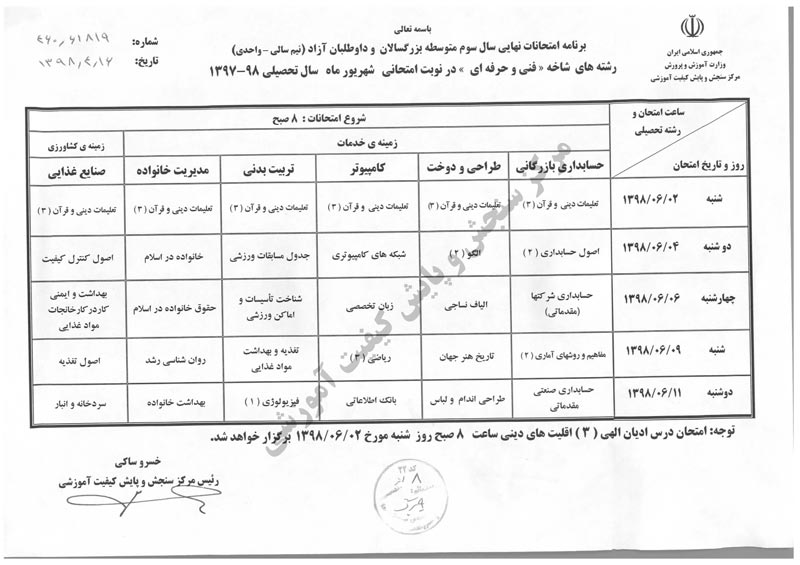 باسمه تعالی
جمهوری اسلامی ایران
وزارت آموزش و پرورش
مرکز سنجش و پایش کیفیت آموزشی
شماره: ۴۶۰٫۶۱۸۱۹
تاریخ: ۱۳۹۸٫۴٫۱۶
برنامه امتحانات نهایی سال سوم متوسطه بزرگسالان و داوطلبان آزاد (نیم سالی - واحدی)
رشته های شاخه « فنی و حرفه ای » در نوبت امتحانی شهریور ماه سال تحصیلی ۹۸-۱۳۹۷
ساعت امتحان و رشته تحصیلی
روز و تاریخ امتحان
شروع امتحانات : ۸ صبح
زمینه ی خدمات
زمینه ی کشاورزی
حسابداری بازرگانی
طراحی و دوخت
کامپیوتر
تربیت بدنی
مدیریت خانواده
صنایع غذایی
شنبه ۱۳۹۸/۰۶/۰۲
تعلیمات دینی و قرآن (۳)
تعلیمات دینی و قرآن (۳)
تعلیمات دینی و قرآن (۳)
تعلیمات دینی و قرآن (۳)
تعلیمات دینی و قرآن (۳)
تعلیمات دینی و قرآن (۳)
دوشنبه ۱۳۹۸/۰۶/۰۴
اصول حسابداری (۲)
الگو (۲)
شبکه های کامپیوتری
جدول مسابقات ورزشی
خانواده در اسلام
اصول کنترل کیفیت
چهارشنبه ۱۳۹۸/۰۶/۰۶
حسابداری شرکتها (مقدماتی)
الیاف نساجی
زبان تخصصی
شناخت تأسیسات و اماکن ورزشی
حقوق خانواده در اسلام
بهداشت و ایمنی کاردرکارخانجات مواد غذایی
شنبه ۱۳۹۸/۰۶/۰۹
مفاهیم و روشهای آماری (۲)
تاریخ هنر جهان
ریاضی (۳)
تغذیه و بهداشت مواد غذایی
روان شناسی رشد
اصول تغذیه
دوشنبه ۱۳۹۸/۰۶/۱۱
حسابداری صنعتی مقدماتی
طراحی اندام و لباس
بانک اطلاعاتی
فیزیولوژی (۱)
بهداشت خانواده
سردخانه و انبار
توجه: امتحان درس ادیان الهی (۳) اقلیت های دینی ساعت ۸ صبح روز شنبه مورخ ۱۳۹۸/۰۶/۰۲ برگزار خواهد شد.
خسرو ساکی
رئیس مرکز سنجش و پایش کیفیت آموزشی
کد ۲۲
مرکز سنجش و پایش کیفیت آموزشی